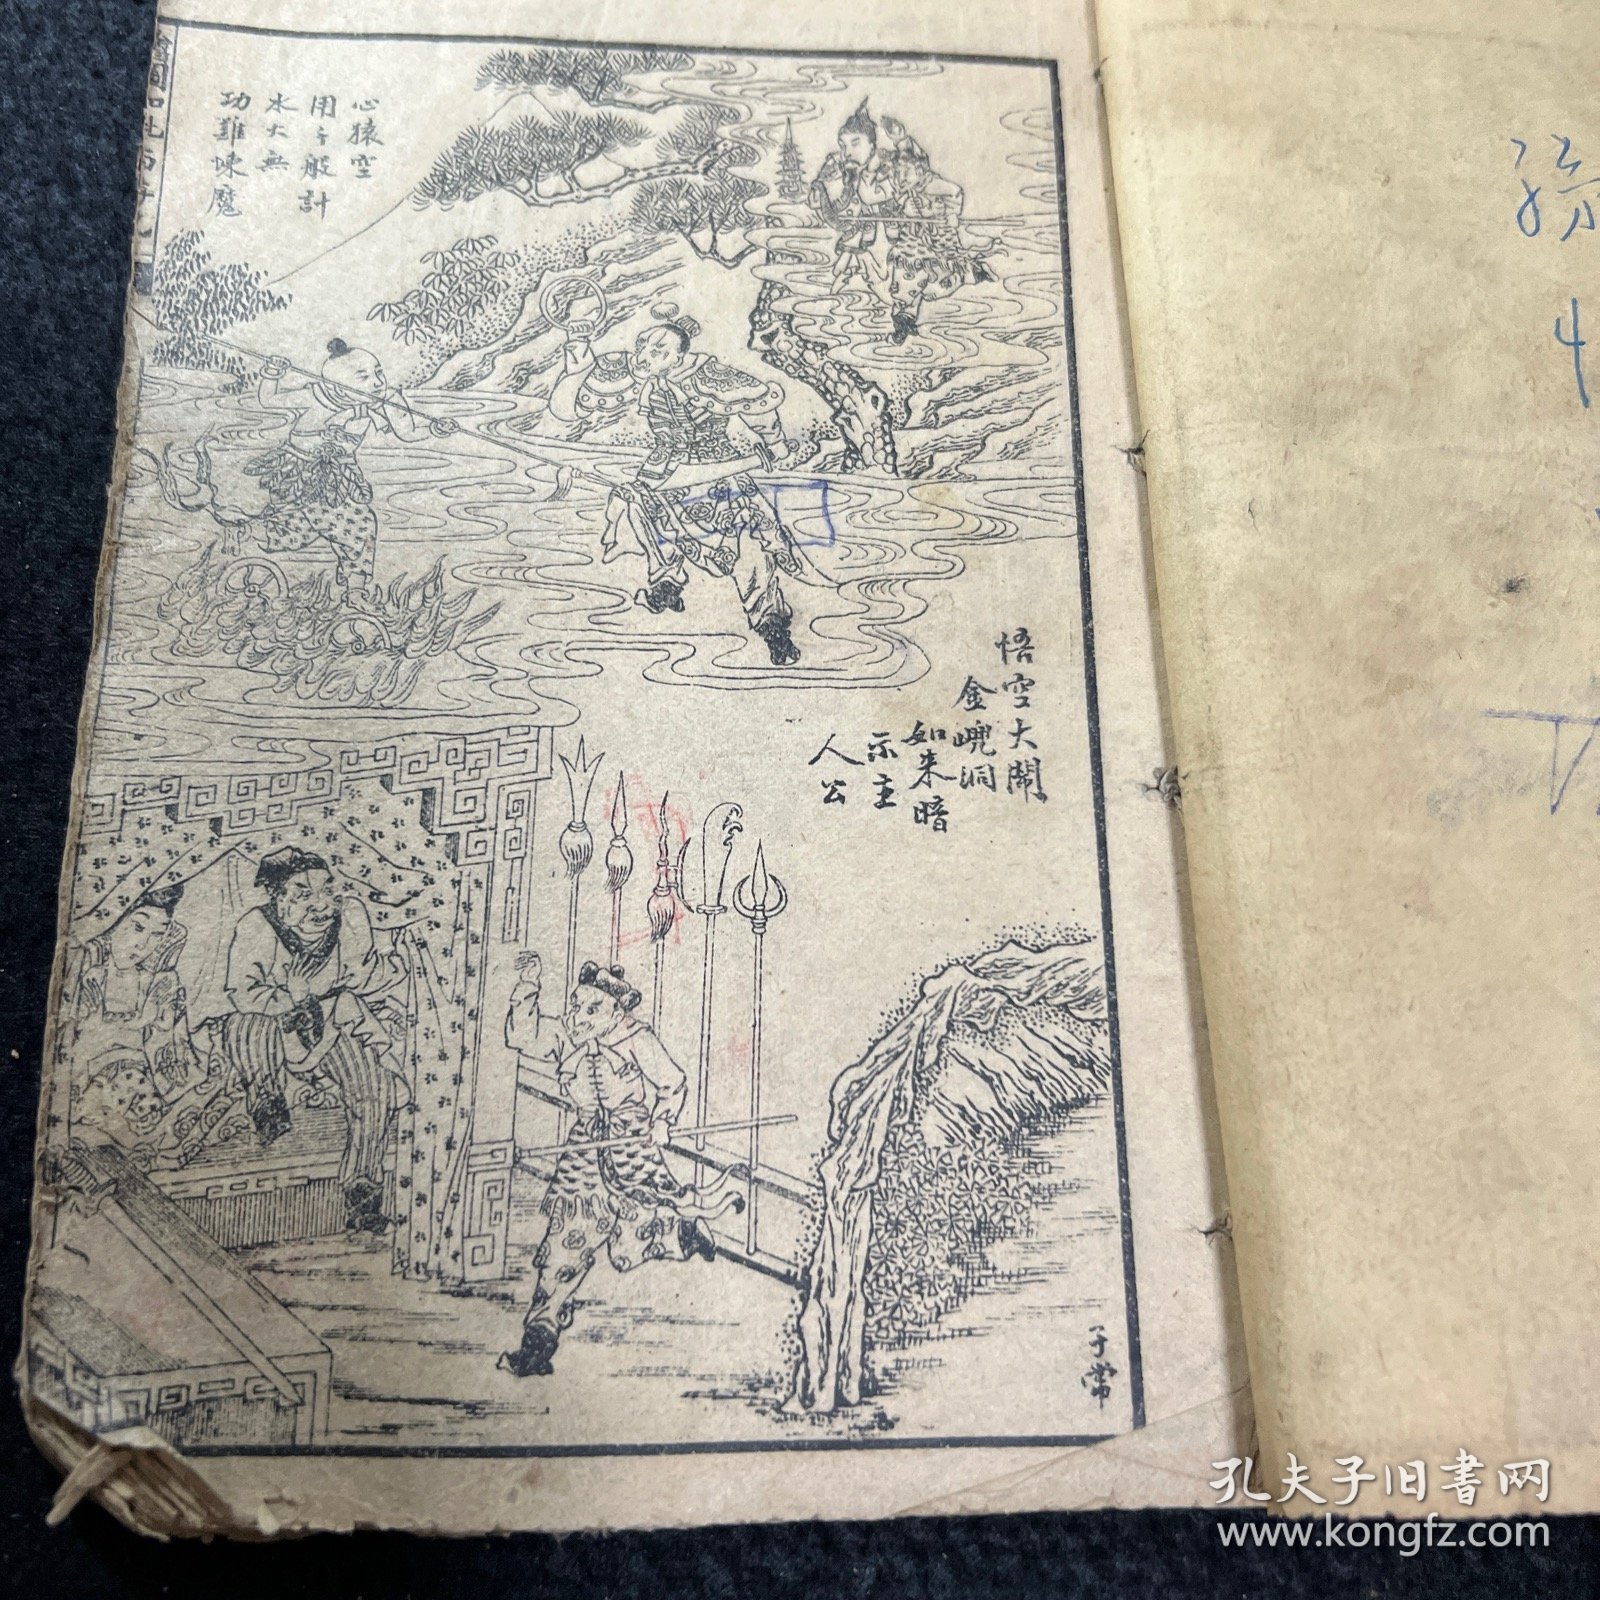 心猿空
用千般計
水火無
功難煉魔
悟空大鬧
金㠙洞
如来暗
示主
人公
子常
孔夫子旧书网
www.kongfz.com